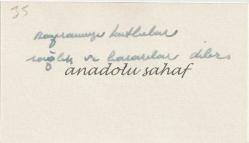 35
Bayramınızı kutlular
sağlık ve başarılar diler
anadolu sahaf